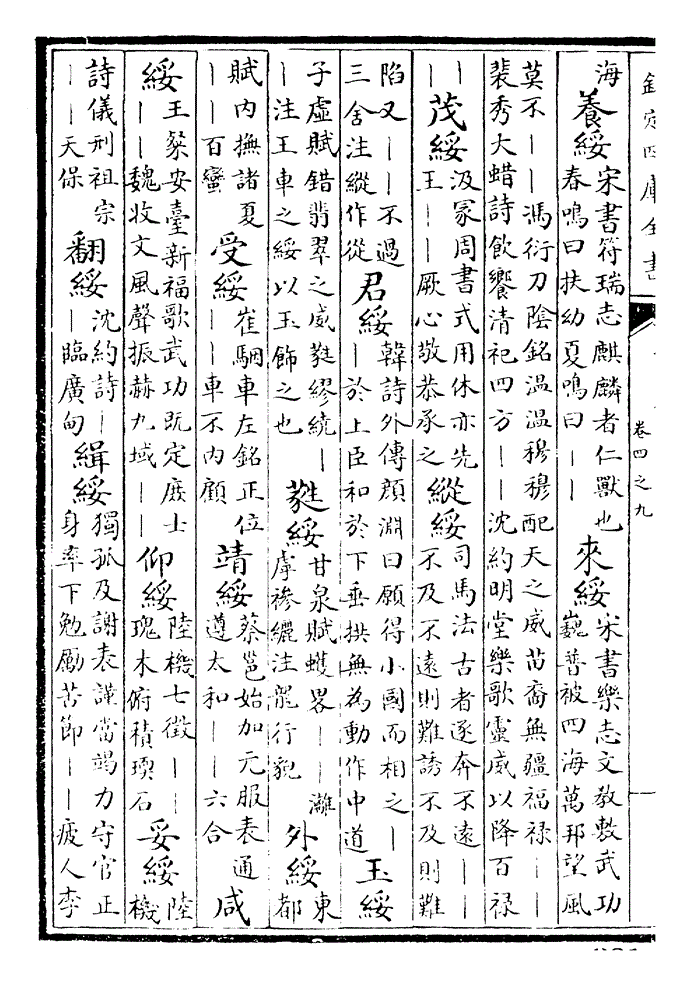 欽定四庫全書
卷四之九
海養綏宋書符瑞志麒麟者仁獸也春鳴曰扶幼夏鳴曰丨丨來綏宋書樂志文教敷武功巍普被四海萬邦望風
莫不丨丨馮衍刀陰銘溫溫穆穆配天之威苗裔無疆福禄丨丨裴秀大蜡詩飲饗清祀四方丨丨沈約明堂樂歌靈威以降百禄
丨丨茂綏汲冢周書式用休亦先王丨丨厥心敬恭承之縱綏司馬法古者逐奔不遠丨丨不及不遠則難誘不及則難
陷又丨丨不過三舍注縱作從君綏韓詩外傳顔淵曰願得小國而相之丨丨於上臣和於下垂拱無為動作中道玉綏
子虛賦錯翡翠之威蕤繆繞丨丨注玉車之綏以玉飾之也蕤綏甘泉賦蠖畧丨丨灕虖襂纚注龍行貌外綏東都
賦内撫諸夏丨丨百蠻受綏崔駰車左銘正位丨丨車不内顧靖綏蔡邕始加元服表通遵太和丨丨六合咸
綏王粲安臺新福歌武功既定庶士丨丨魏收文風聲振赫九域丨丨仰綏陸機七徵丨丨瑰木俯積瓊石妥綏陸機
詩儀刑祖宗丨丨天保翻綏沈約詩丨丨臨廣甸緝綏獨孤及謝表謹當竭力守官正身率下勉勵苦節丨丨疲人李